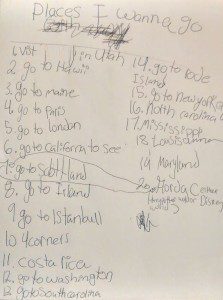 Places I wanna go
1. visit in Utah
2. go to Hawii
3. go to maine
4. go to paris
5. go to london
6. go to California to see
7. go to Scotland
8. go to Irland
9 go to Istanbull
10 4corners
11. costa rica
12. go to washington
13 go to South carolina
14. go to Rode
Island
15. go to new york
16. North carolina
17. Mississippi
18 Louisianna
19 Maryland
Florida